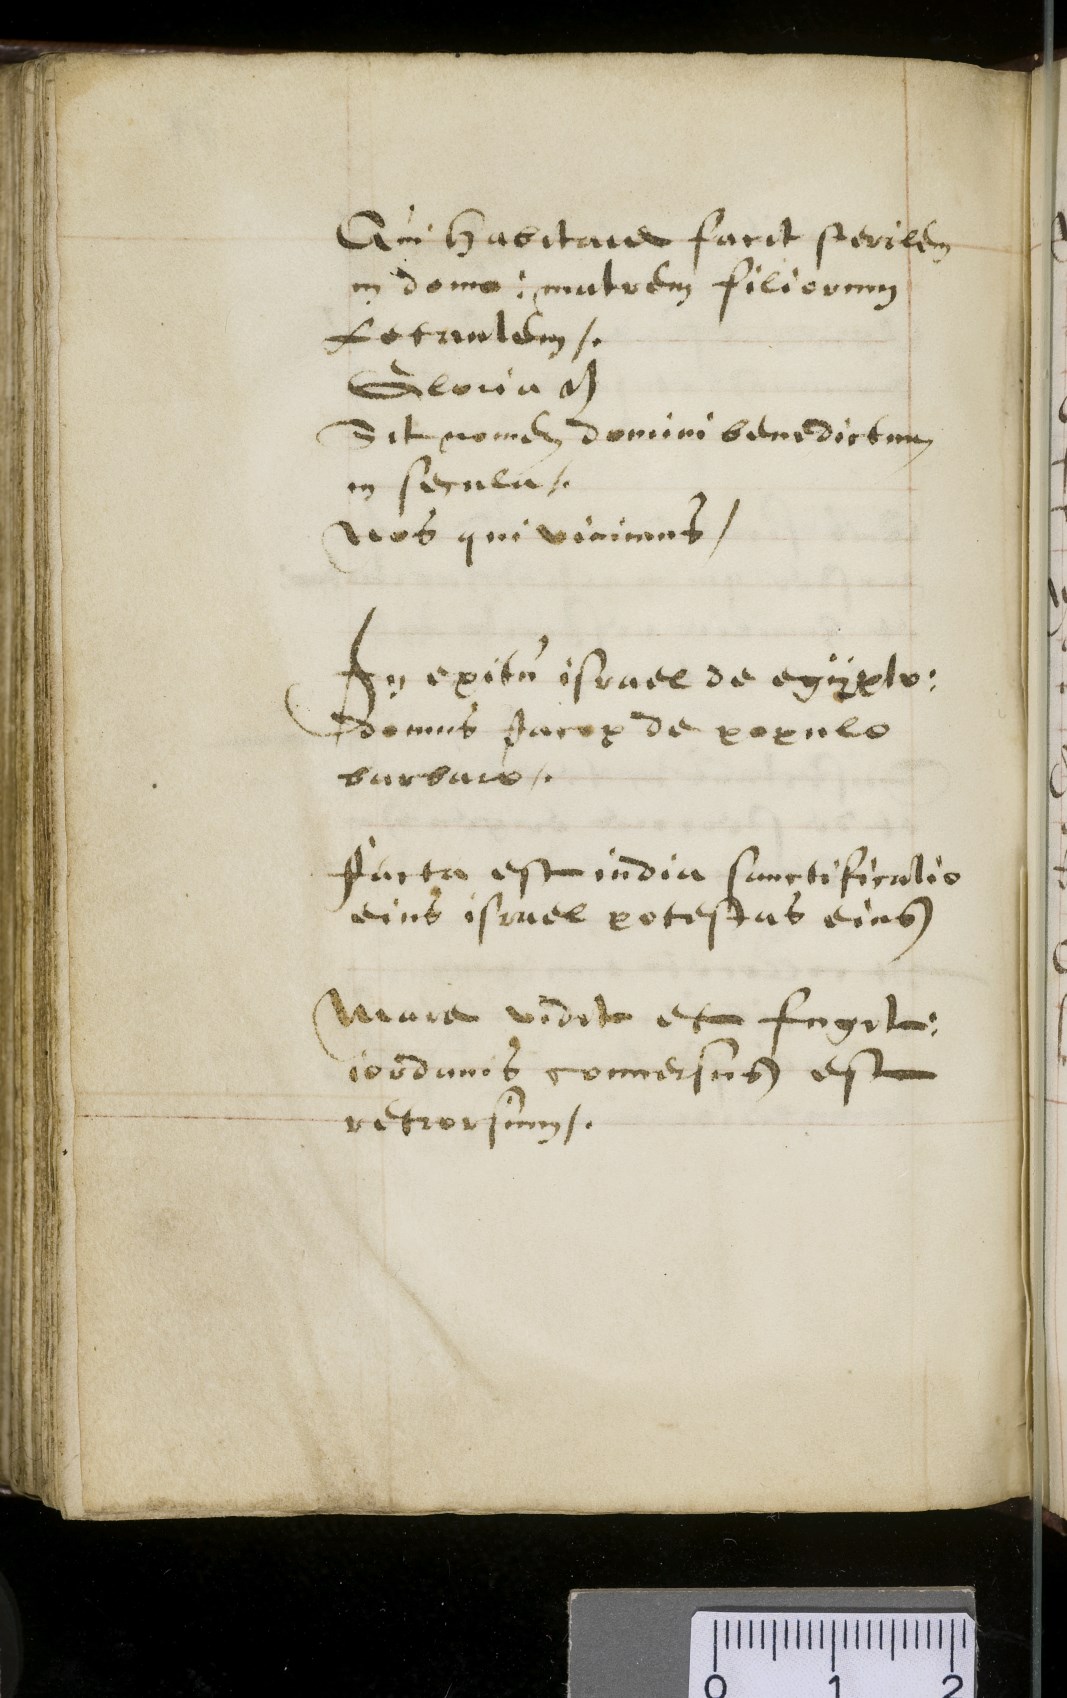 Qui habitare facit sterilem
in domo : matrem filiorum
letantem /.
Gloria p
Sit nomen domini benedictum
in secula /.
Nos qui viuimus /
In exitu israel de egÿpto :
domus Jacop de populo
barbaro /.
Facta est iudia sanctificatio
eius israel potestas eius
Mare vidit et fugit :
iordanis conuersus est
retrorsum /.
0 1 2